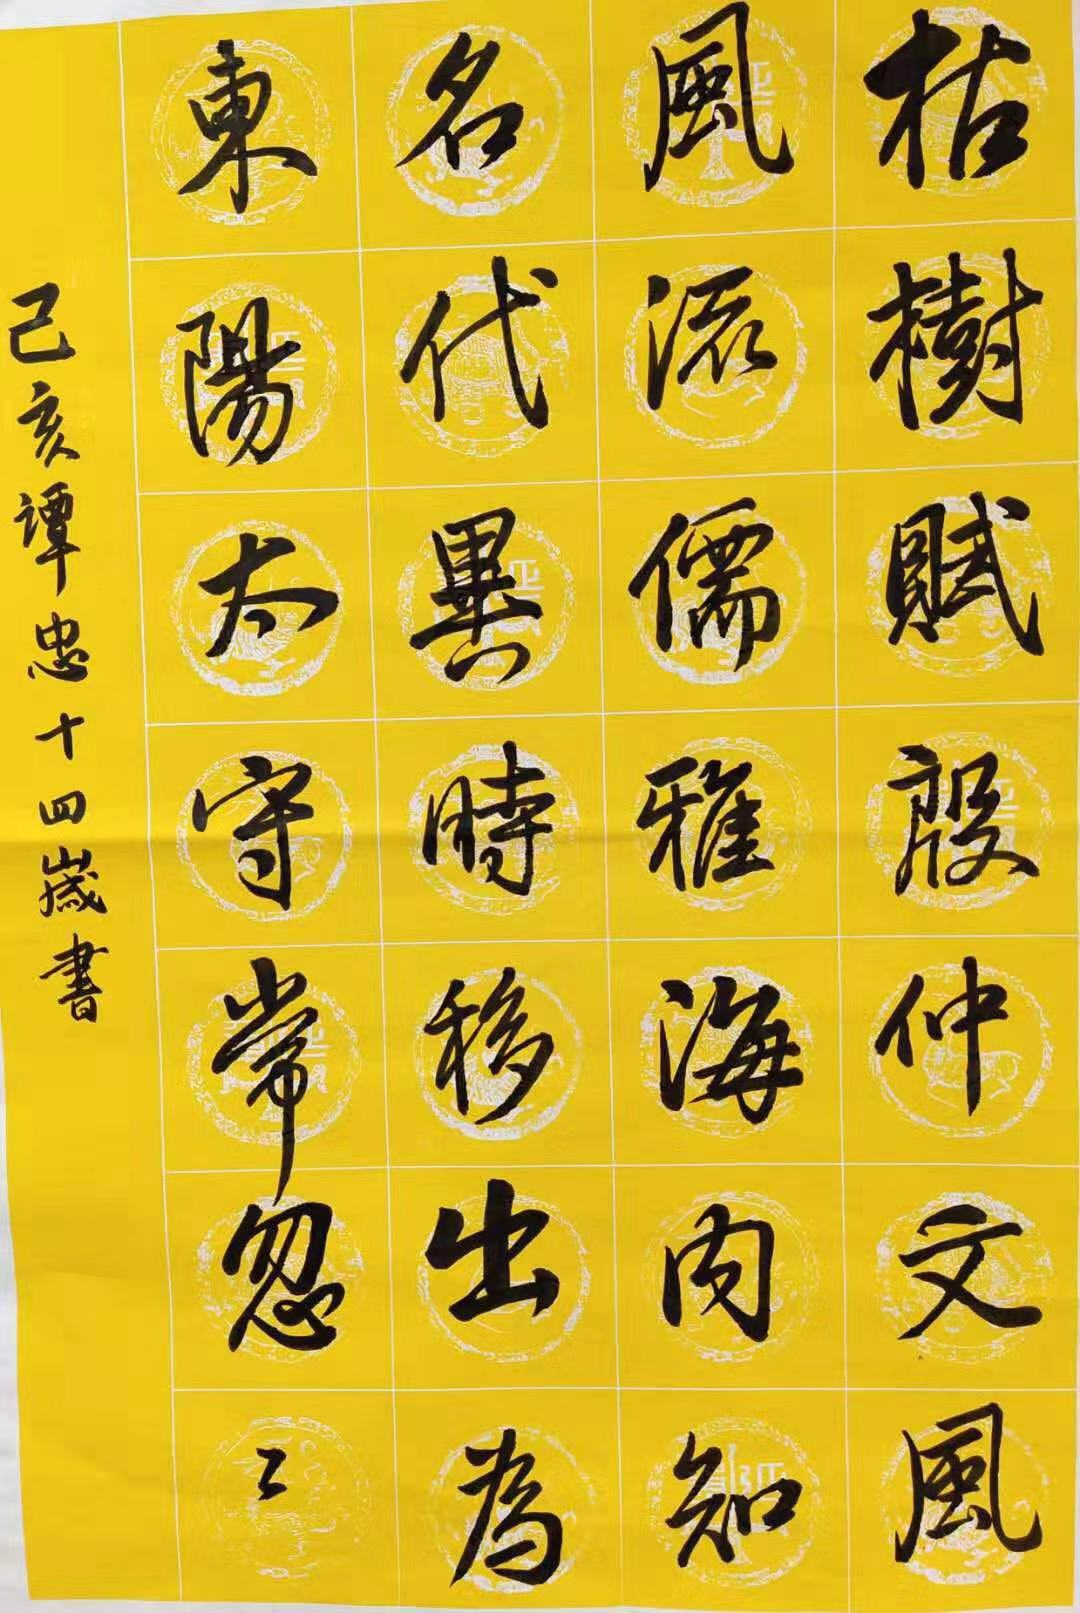 枯樹賦殷仲文風
風流儒雅海内知
名代異時移出為
東陽太守常忽〻
己亥譚忠十四歲書